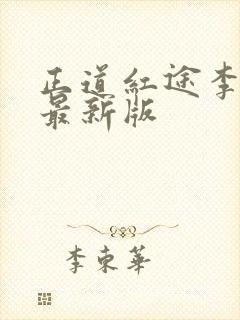 正道紅途李
最新版
李東華